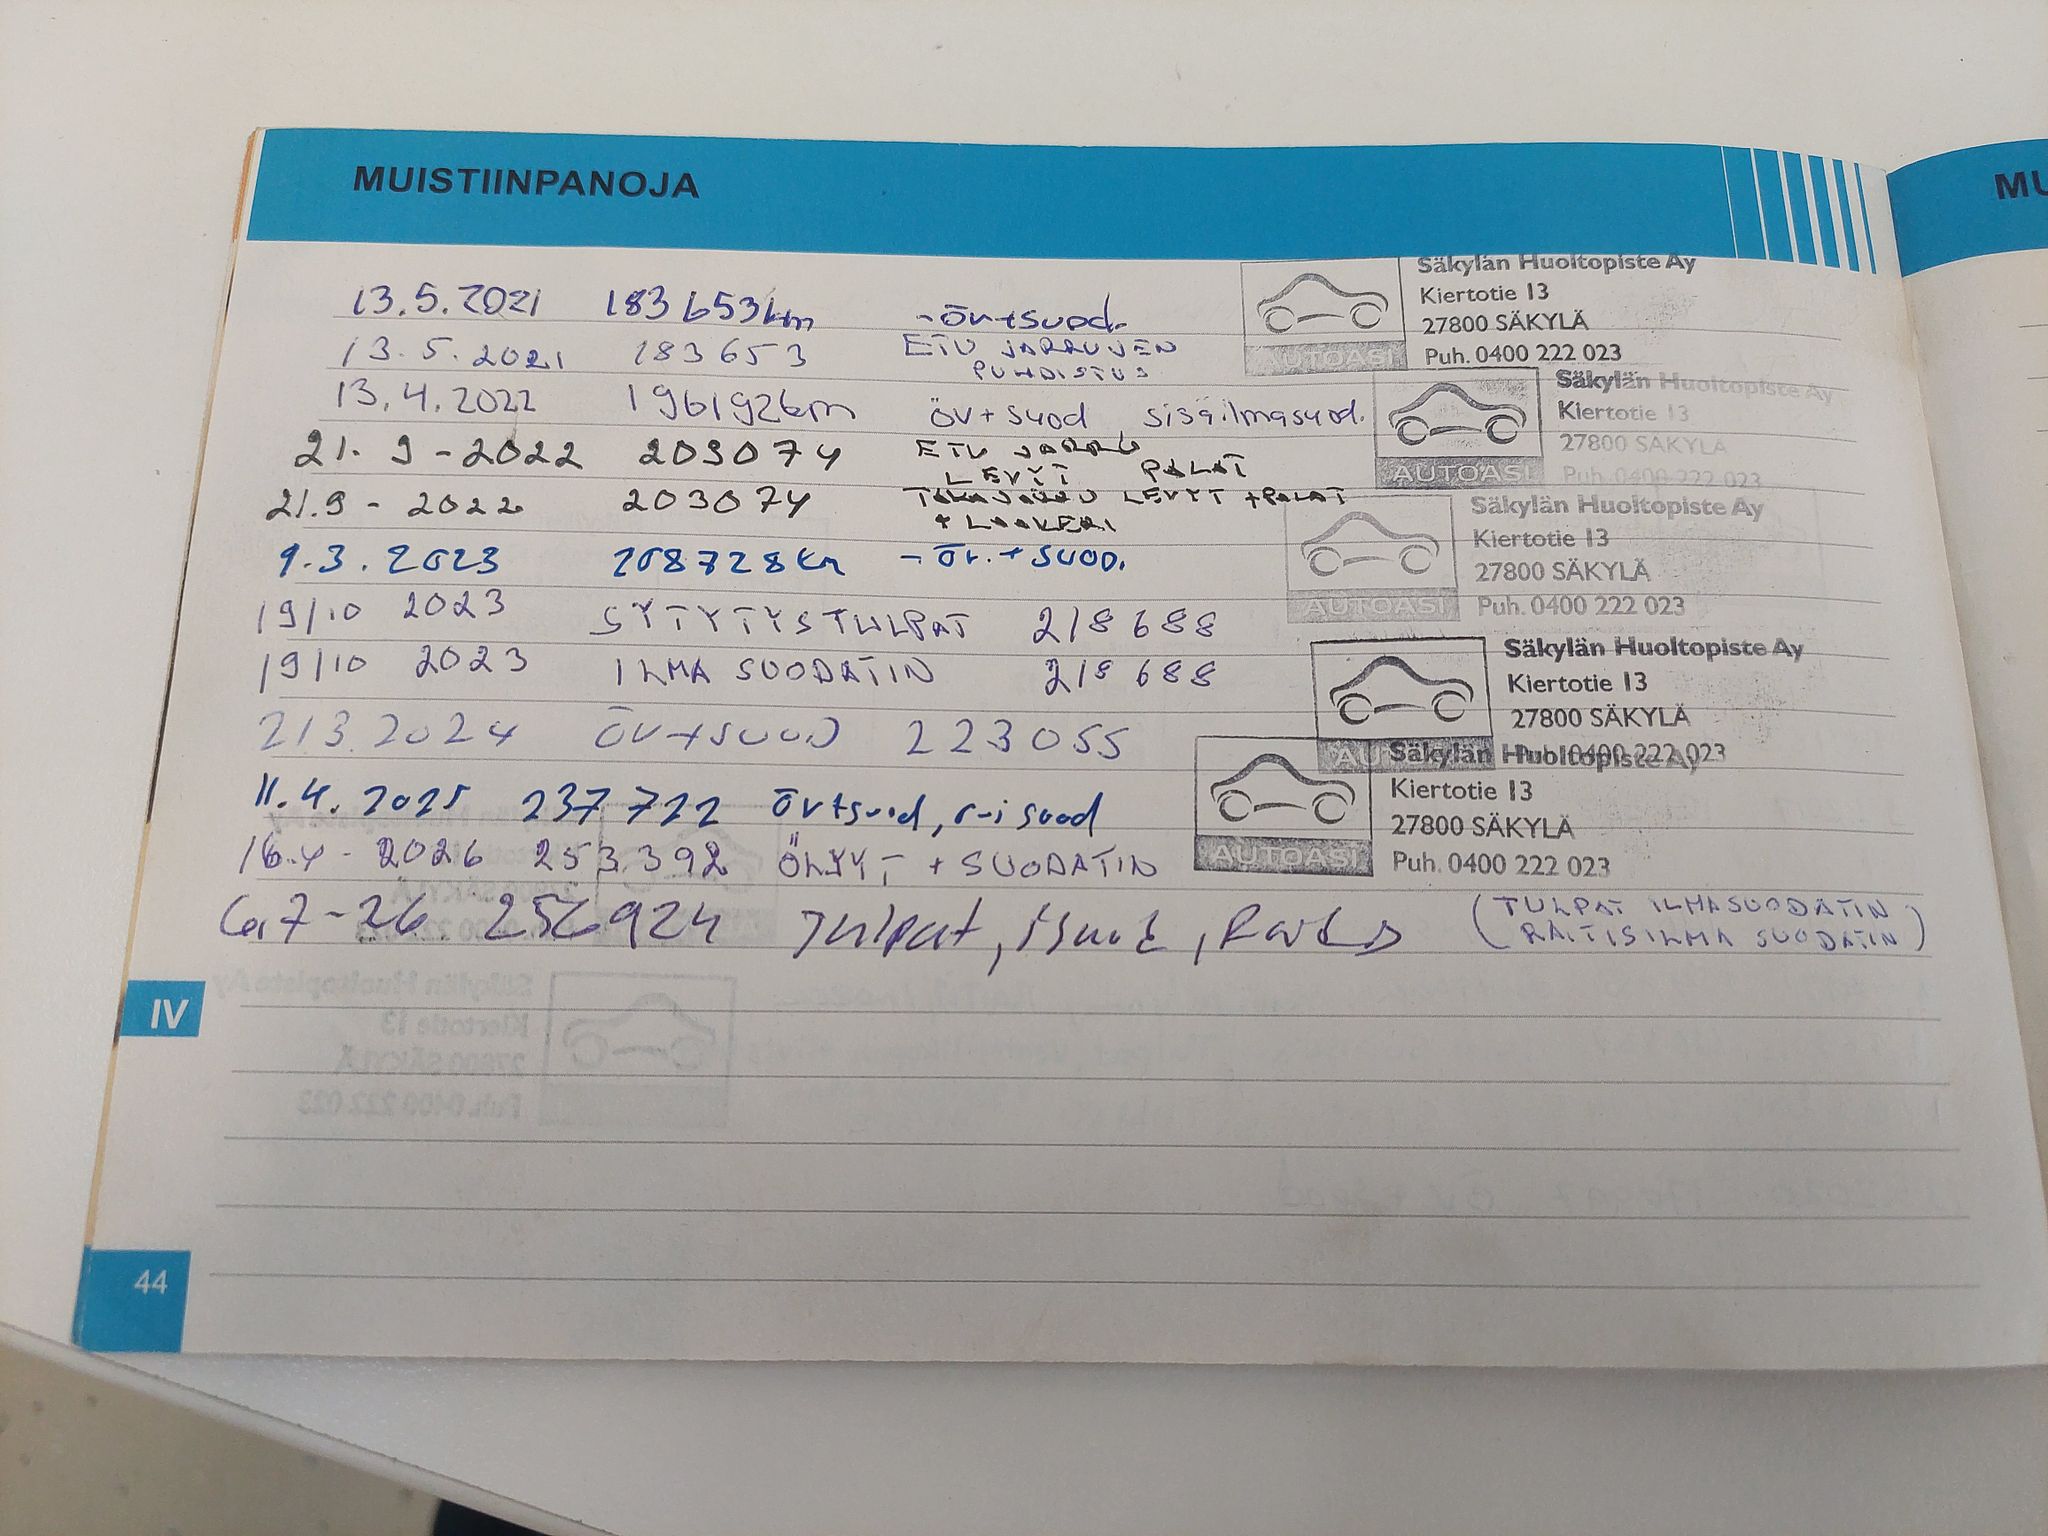 MUISTIINPANOJA
MU
13.5.2021 183653km -öv+suod.
13.5.2021 183653 ETU JARRUJEN
PUHDISTUS
13.4.2022 196192km öv+suod sisäilmasuod.
21.9-2022 203074 ETU JARRU
LEVYT PALAT
21.9-2022 203074 TAKAJARRU LEVYT +PALAT
+ LOOKERI
9.3.2023 208728km -öv.+suod.
19/10 2023 SYTYTYSTULPAT 218688
19/10 2023 ILMA SUODATIN 218688
21.3.2024 öv+suod 223055
11.4.2025 237722 öv+suod, r-i suod
16.4-2026 253392 ÖLJYT + SUODATIN
6.7-26 256924 Tulpat,
(TULPAT ILMASUODATIN
RAITISILMA SUODATIN)
Säkylän Huoltopiste Ay
Kiertotie 13
27800 SÄKYLÄ
Puh. 0400 222 023
AUTOASI
Säkylän Huoltopiste Ay
Kiertotie 13
27800 SÄKYLÄ
Puh. 0400 222 023
AUTOASI
Säkylän Huoltopiste Ay
Kiertotie 13
27800 SÄKYLÄ
Puh. 0400 222 023
AUTOASI
Säkylän Huoltopiste Ay
Kiertotie 13
27800 SÄKYLÄ
Puh. 0400 222 023
Säkylän Huoltopiste Ay
Kiertotie 13
27800 SÄKYLÄ
Puh. 0400 222 023
AUTOASI
IV
44